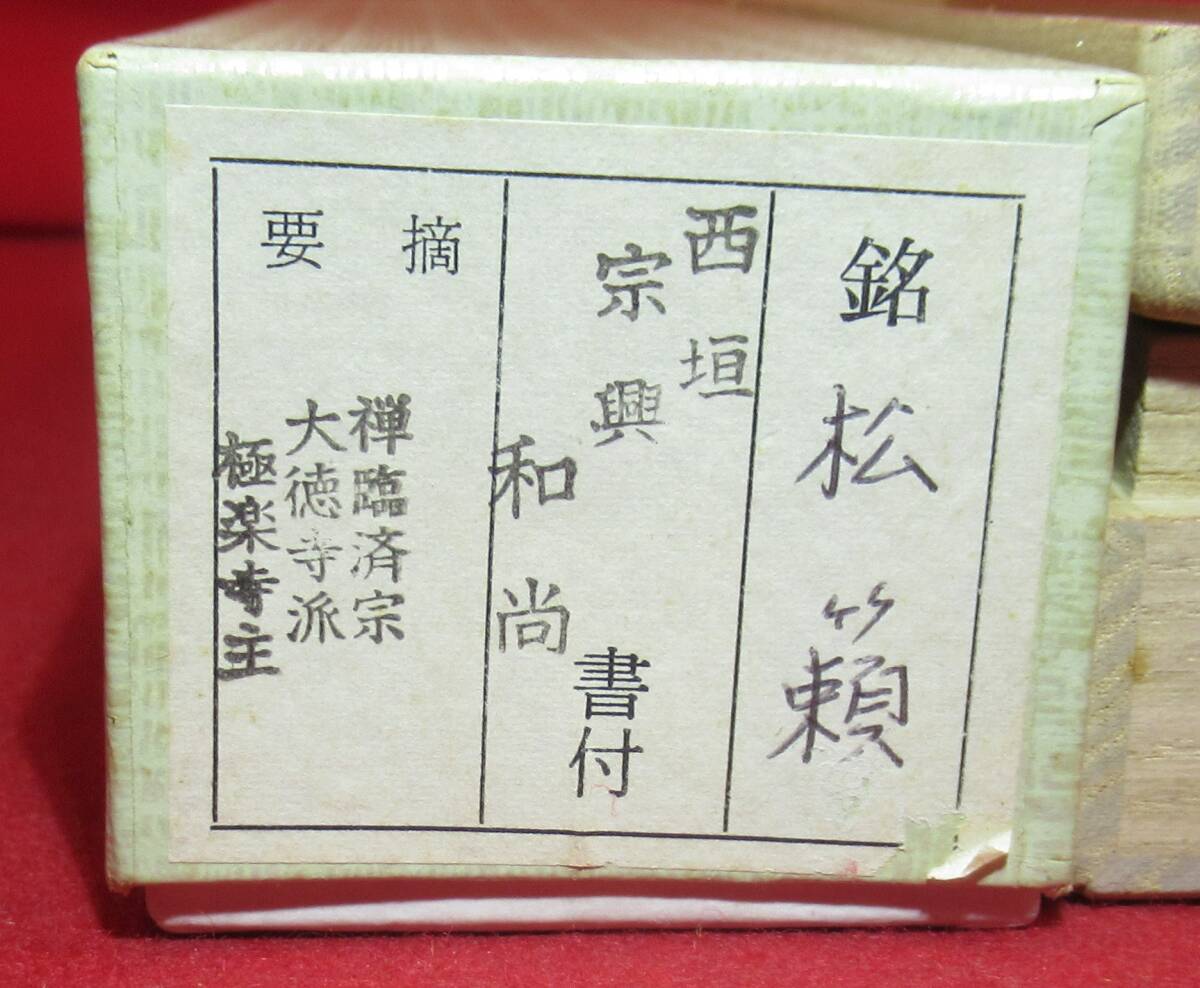 銘 松籟
西垣
宗興
和尚
書付
摘要
禅臨済宗
大徳寺派
極楽寺主